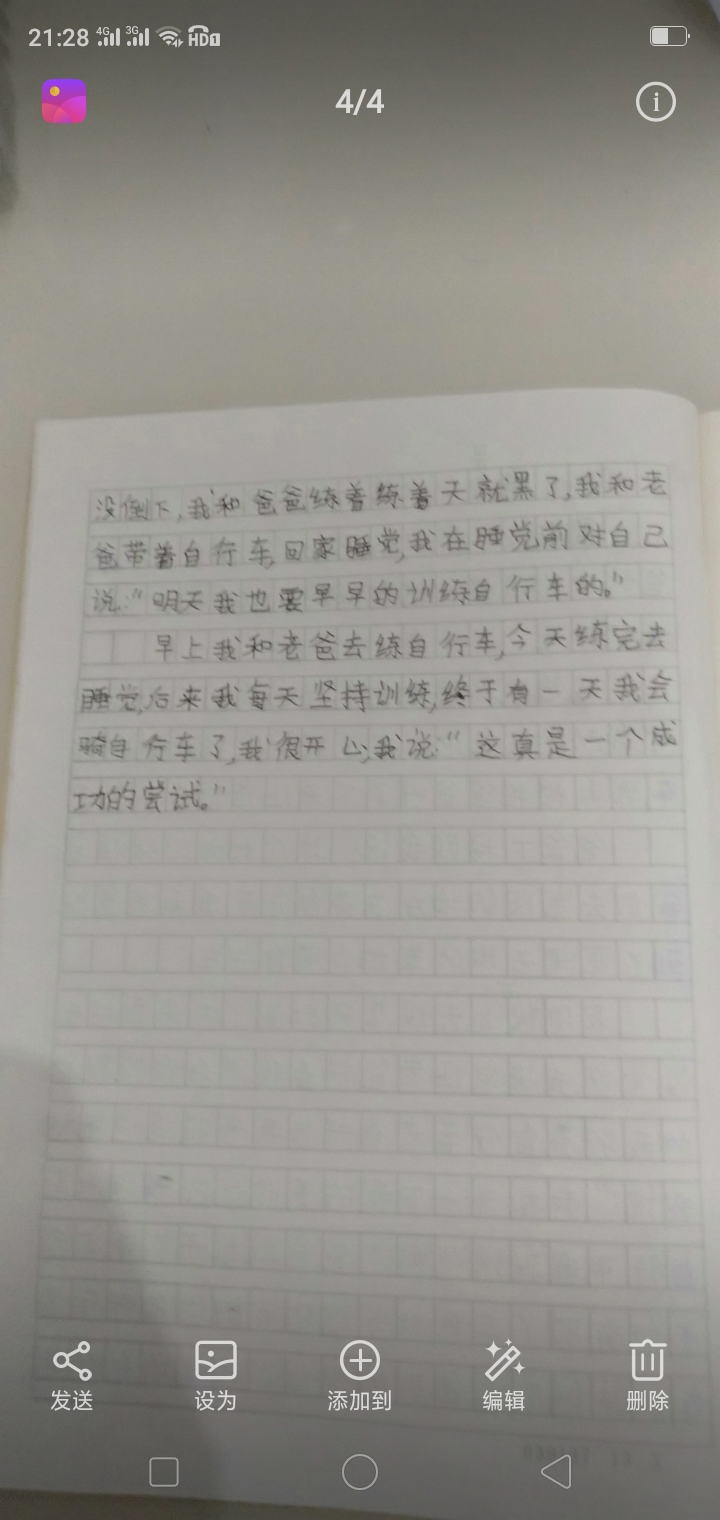 21:28 4G 3G HD1
4/4
没倒下,我和爸爸练着练着天就黑了,我和老
爸带着自行车,回家睡觉,我在睡觉前对自己
说:“明天我也要早早的训练自行车的。”
早上我和老爸去练自行车,今天练完去
睡觉,后来我每天坚持训练,终于有一天我会
骑自行车了,我很开心,我说:“这真是一个成
功的尝试。”
发送 设为 添加到 编辑 删除